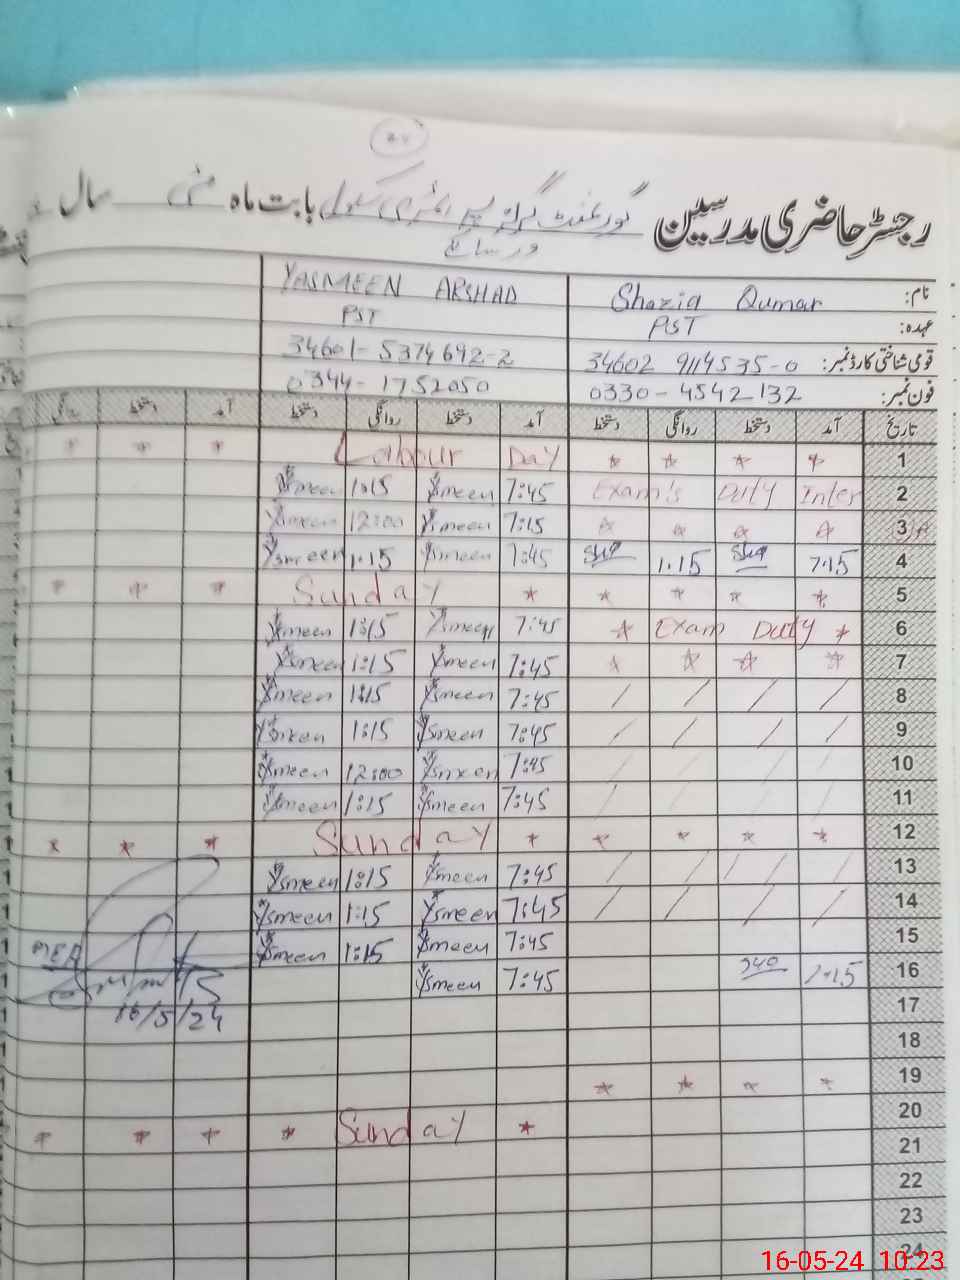 رجسٹر حاضری مدرسین گورنمنٹ گرلز پرائمری سکول بابت ماہ مئی سال
نام: Shazia Qumar YASMEEN ARSHAD
عہدہ: PST PST
قومی شناختی کارڈ نمبر: 34602 9114535-0 34601-5374692-2
فون نمبر: 0330-4542132 0344-1752050
تاریخ آمد دستخط روانگی دستخط آمد دستخط روانگی دستخط آمد دستخط
1 * * * * Labour Day * * *
2 Exam's Duty Inter 7:45 Ysmeen 1:15 Ysmeen
3 * * * * 7:15 Ysmeen 12:00 Ysmeen
4 7.15 Sha 1.15 Sha 7:45 Ysmeen 1.15 Ysmeen
5 * * * * * Sunday * * *
6 * Exam Duty * 7:45 Ysmeen 1:15 Ysmeen
7 * * * * 7:45 Ysmeen 1:15 Ysmeen
8 / / / / 7:45 Ysmeen 1:15 Ysmeen
9 / / / / 7:45 Ysmeen 1:15 Ysmeen
10 / / / / 7:45 Ysmeen 12:00 Ysmeen
11 / / / / 7:45 Ysmeen 1:15 Ysmeen
12 * * * * * Sunday * * *
13 / / / / 7:45 Ysmeen 1:15 Ysmeen
14 / / / / 7:45 Ysmeen 1:15 Ysmeen
15 7:45 Ysmeen 1:15 Ysmeen
16 7.15 7:45 Ysmeen
MEA
16/5/24
17
18
19 * * * * * Sunday * * * *
20
21
22
23
24
16-05-24 10:23